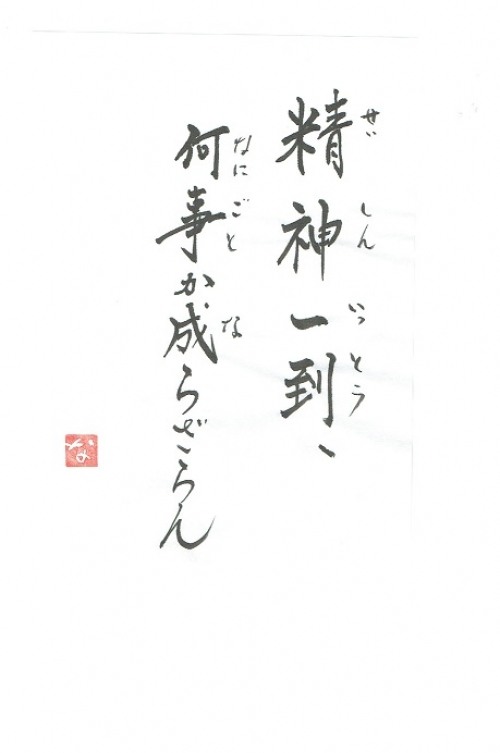 精神一到、
せい しん いっ とう
何事か成らざらん
なに ごと な
な